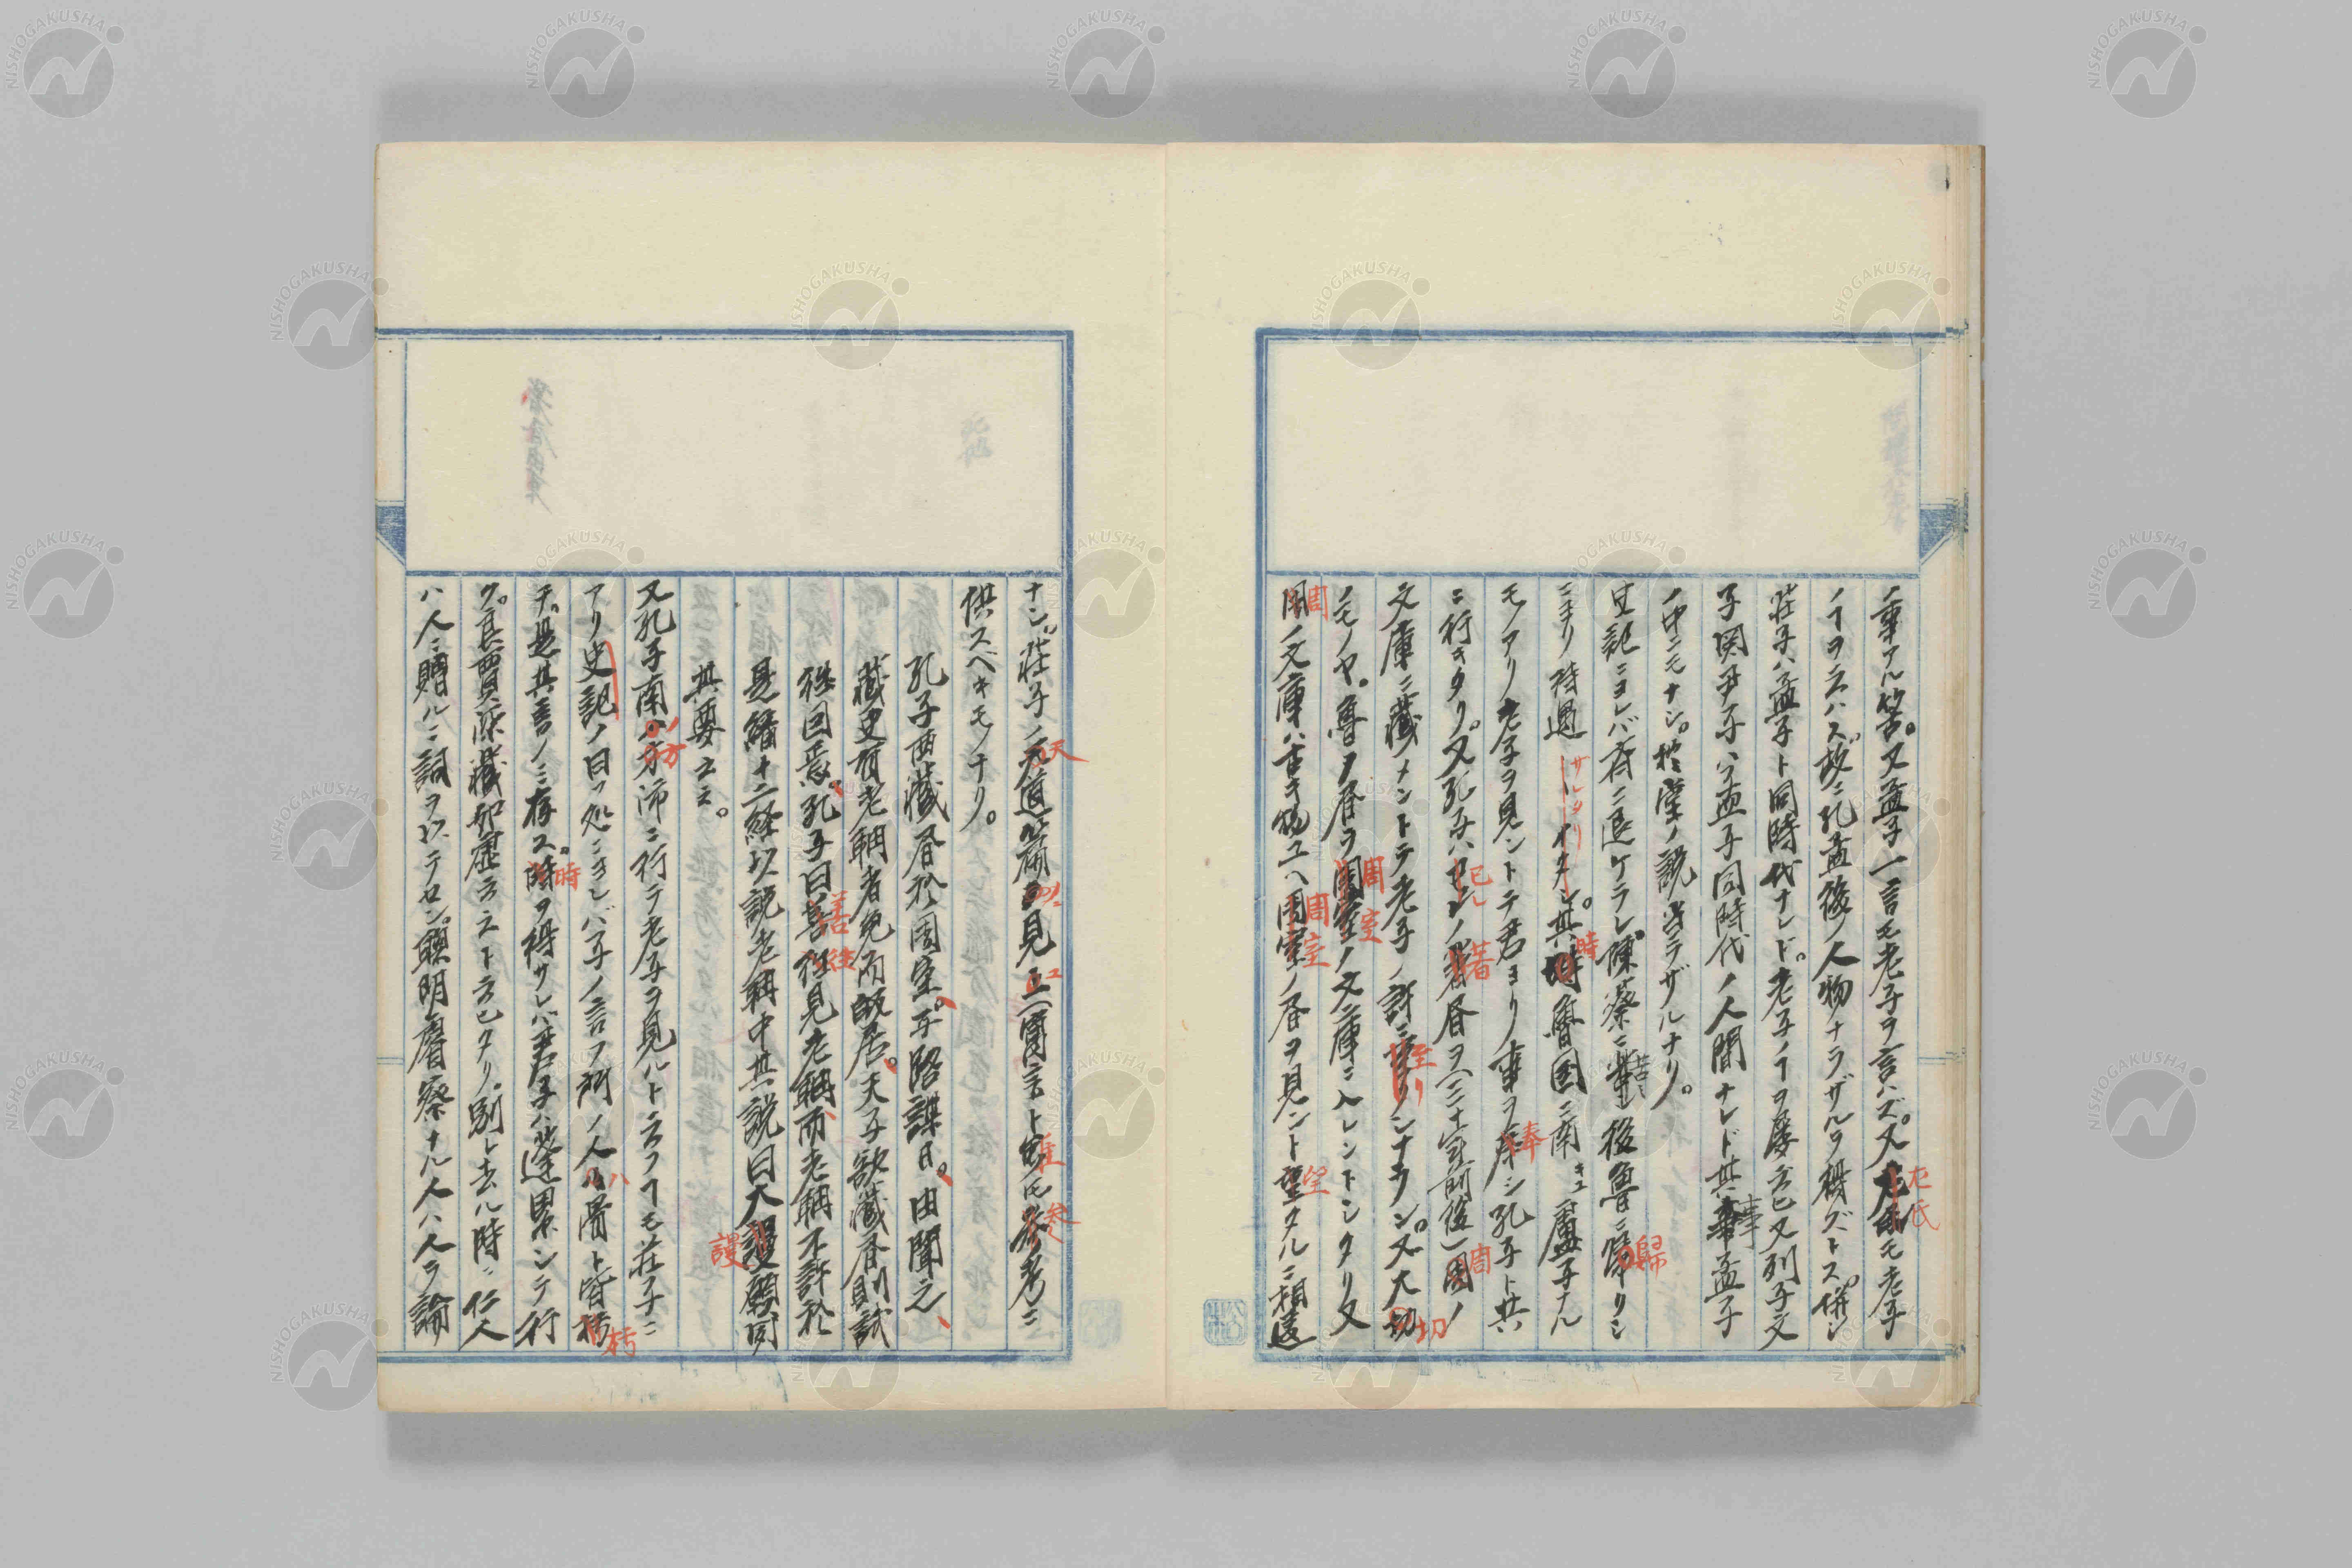 ノ事アル筈。又孟子一言モ老子ヲ言ハズ。又左氏モ老子
ノヿヲ云ハズ。故ニ孔孟後ノ人物ナラザルヲ得ズトス。併シ
荘子ハ孟子ト同時代ナレド。老子ノヿヲ屡云ヒ又列子文
子関尹子ハ孟子同時代ノ人間ナレド其事孟子
ノ中ニモナシ。於漢ノ説当ラザルナリ。
史記ニヨレバ斉ニ退ケラレ。陳蔡ニ苦シ後魯ニ帰リシ
ニヨリ待遇サレタリイタシ。其時魯国ニ南キユ盧子ナル
モノアリ老子ヲ見ントテ君ヨリノ車ヲ奉シ孔子ト共
ニ行キタリ。又孔子ハ已レノ著書ヲ(三十家前後)周ノ
文庫ニ蔵メントテ老子ノ許ニ至リシナラン。又大切
ノモノヤ。魯ノ書ヲ周室ノ文庫ニ入レントシタリ又
周ノ文庫ハ古キ物ユヘ周室ノ書ヲ見ント望タルニ相違
ナシ。荘子ノ天道篇ニ見ユ寓言ト雖氏参考ニ
供スベキモノナリ。
孔子西蔵書於周室。子路謀曰。由聞之、
蔵史有老耼者免而帰居。夫子欲蔵書則試
往因焉。孔子曰善往見老耼而老耼不許於
是繙十二経以説老耼中其説曰大謾願聞
其要云云。
又孔子南ノ方沛ニ行テ老子ヲ見ルト云フヿモ荘子ニ
アリ史記ノ曰フ処ニヨレバ子ノ言フ所ノ人ハ骨ト皆朽
チ。是其言ノミ存ス。時ヲ得サレバ君子ハ蓬累シテ行
ク。良賈深蔵如虚云ストラヒタリ。別レ去ル時ニ仁人
ハ人ニ贈ルニ詞ヲ以テセン。聰明聰察ナル人ハ人ヲ論